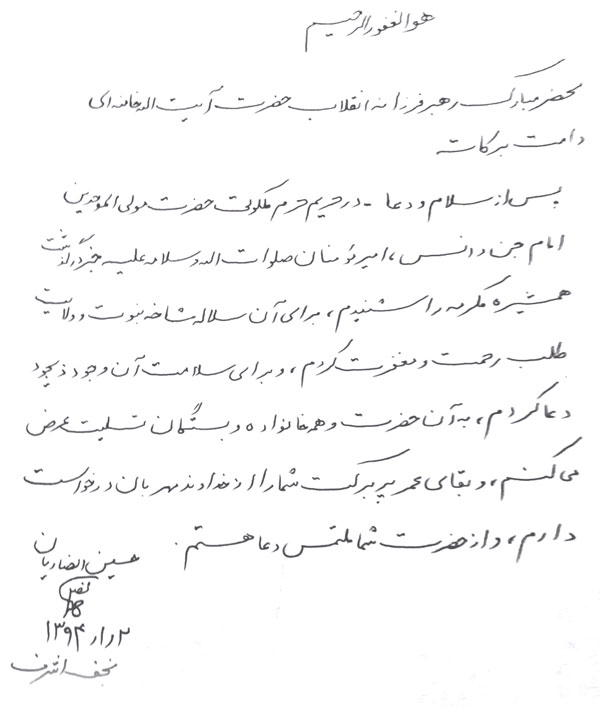 هو الغفور الرحیم
محضر مبارک رهبر فرزانه انقلاب حضرت آیت الله خامنه ای
دامت برکاته
پس از سلام و دعا - در حریم حرم ملکوتی حضرت مولی الموحدین
امام جن و انس، امیرمؤمنان صلوات الله و سلامه علیه خبر درگذشت
همشیره مکرمه را شنیدم، برای آن سلاله شاخه نبوت و ولایت
طلب رحمت و مغفرت کردم، و برای سلامت آن وجود ذیجود
دعا کردم، به آن حضرت و همه خانواده و بستگان تسلیت عرض
می کنم، و بقای عمر پر برکت شما را از خداوند مهربان درخواست
دارم، و از حضرت شما ملتمس دعا هستم.
حسین انصاریان
۱۳۹۴
نجف اشرف